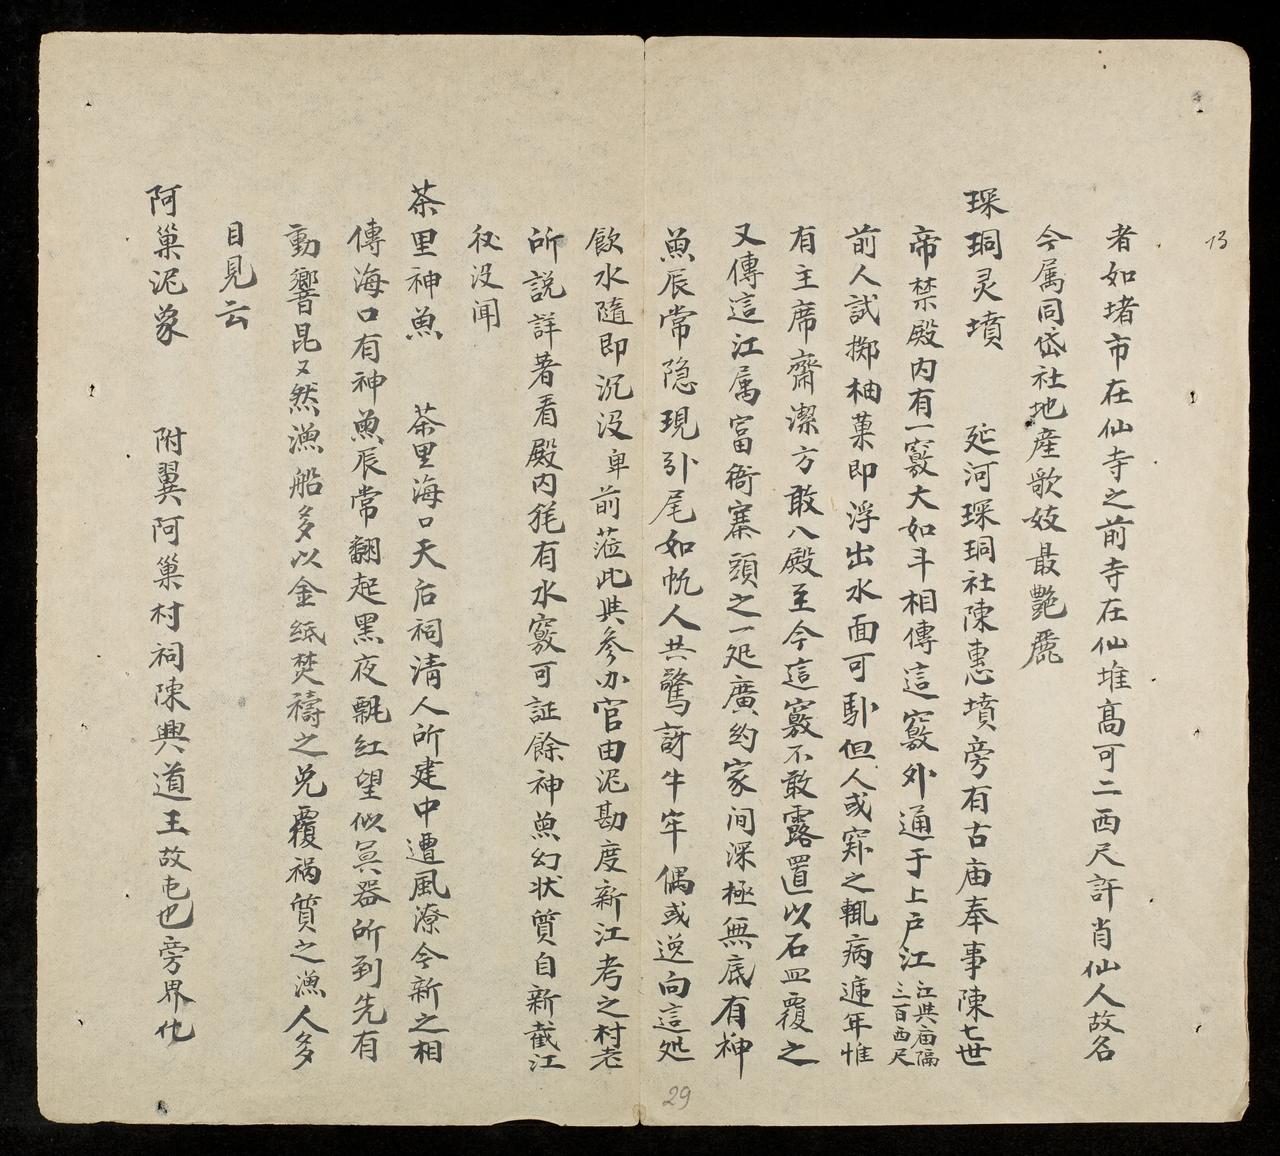 13
者如堵市在仙寺之前寺在仙堆高可二西尺許肖仙人故名
今属同岱社地産歌妓最艷麗
琛珛灵墳　延河琛珛社陳惠墳旁有古庙奉事陳七世
帝禁殿内有一竅大如斗相傳這竅外通于上戶江江共庙隔三百西尺
前人試擲柚菓即浮出水面可馭但人或窺之輒病遞年惟
有主席齋潔方敢入殿至今這竅不敢露置以石皿覆之
又傳這江属富衙寨頭之一処廣約家间深極無底有神
魚辰常隐現引尾如帆人共驚訝牛牢偶或逸向這処
飲水隨即沉没卑前蒞此共参办官由泥勘度新江考之村老
所説詳著看殿内㹞有水竅可証餘神魚幻状質自新截江
後没聞
茶里神魚　茶里海口天后祠清人所建中遭風潦今新之相
傳海口有神魚辰常翻起黑夜飄红望似冥器所到先有
動響昆又然漁船多以金紙焚禱之免覆祸質之漁人多
目見云
阿巢泥象　附翼阿巢村祠陳興道王故屯也旁界化
29